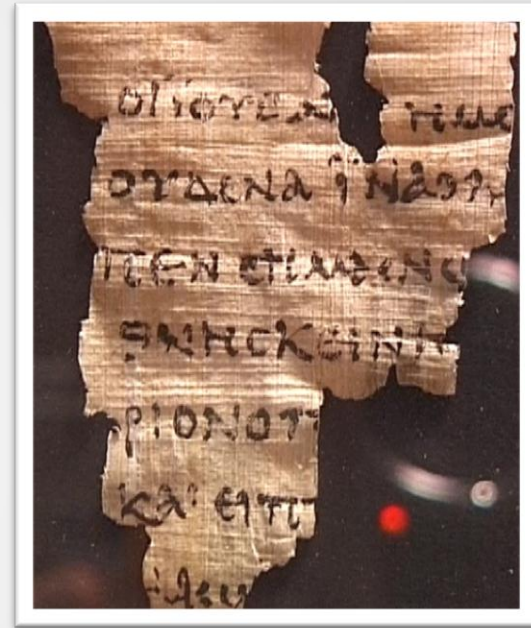 ΟΙ ΙΟΥΔΑ ΗΜΕ
ΟΥΔΕΝΑ ΪΝΑ Ο Λ
ΠΕΝ ϹΗΜΑΙΝΩ
ΘΝΗϹΚΕΙΝ Ι
ΡΙΟΝ Ο Π
ΚΑΙ ΕΙΠ